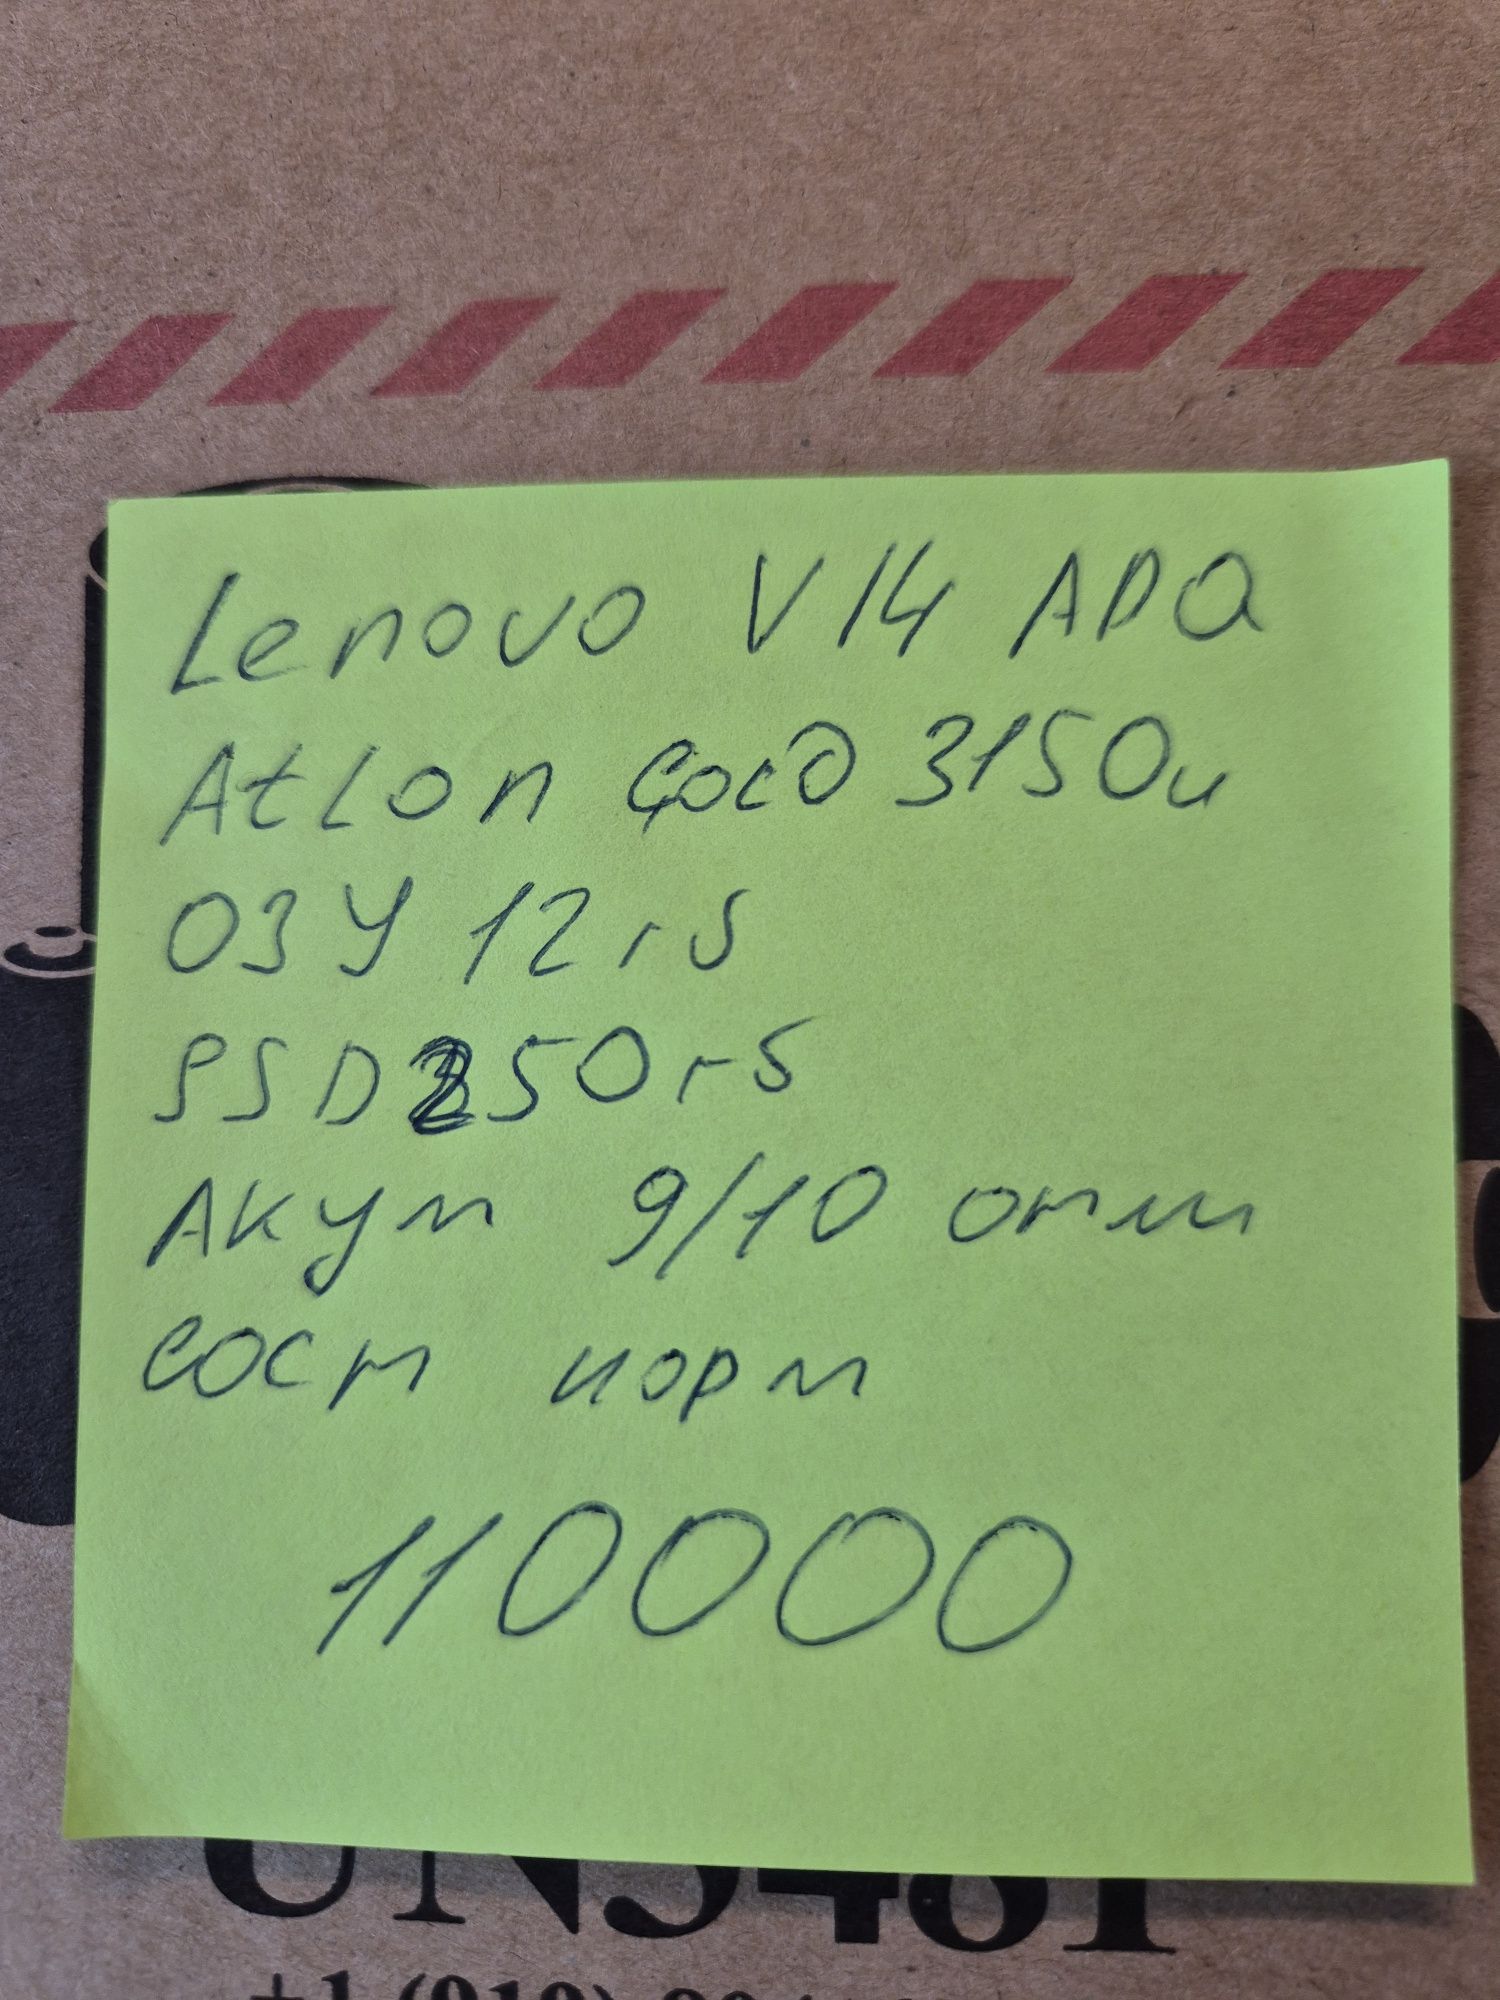 Lenovo V14 ADA
Atlon Gold 3150u
ОЗУ 12 гб
SSD 250 гб
Акум 9/10 отл
сост норм
110000
UN3481